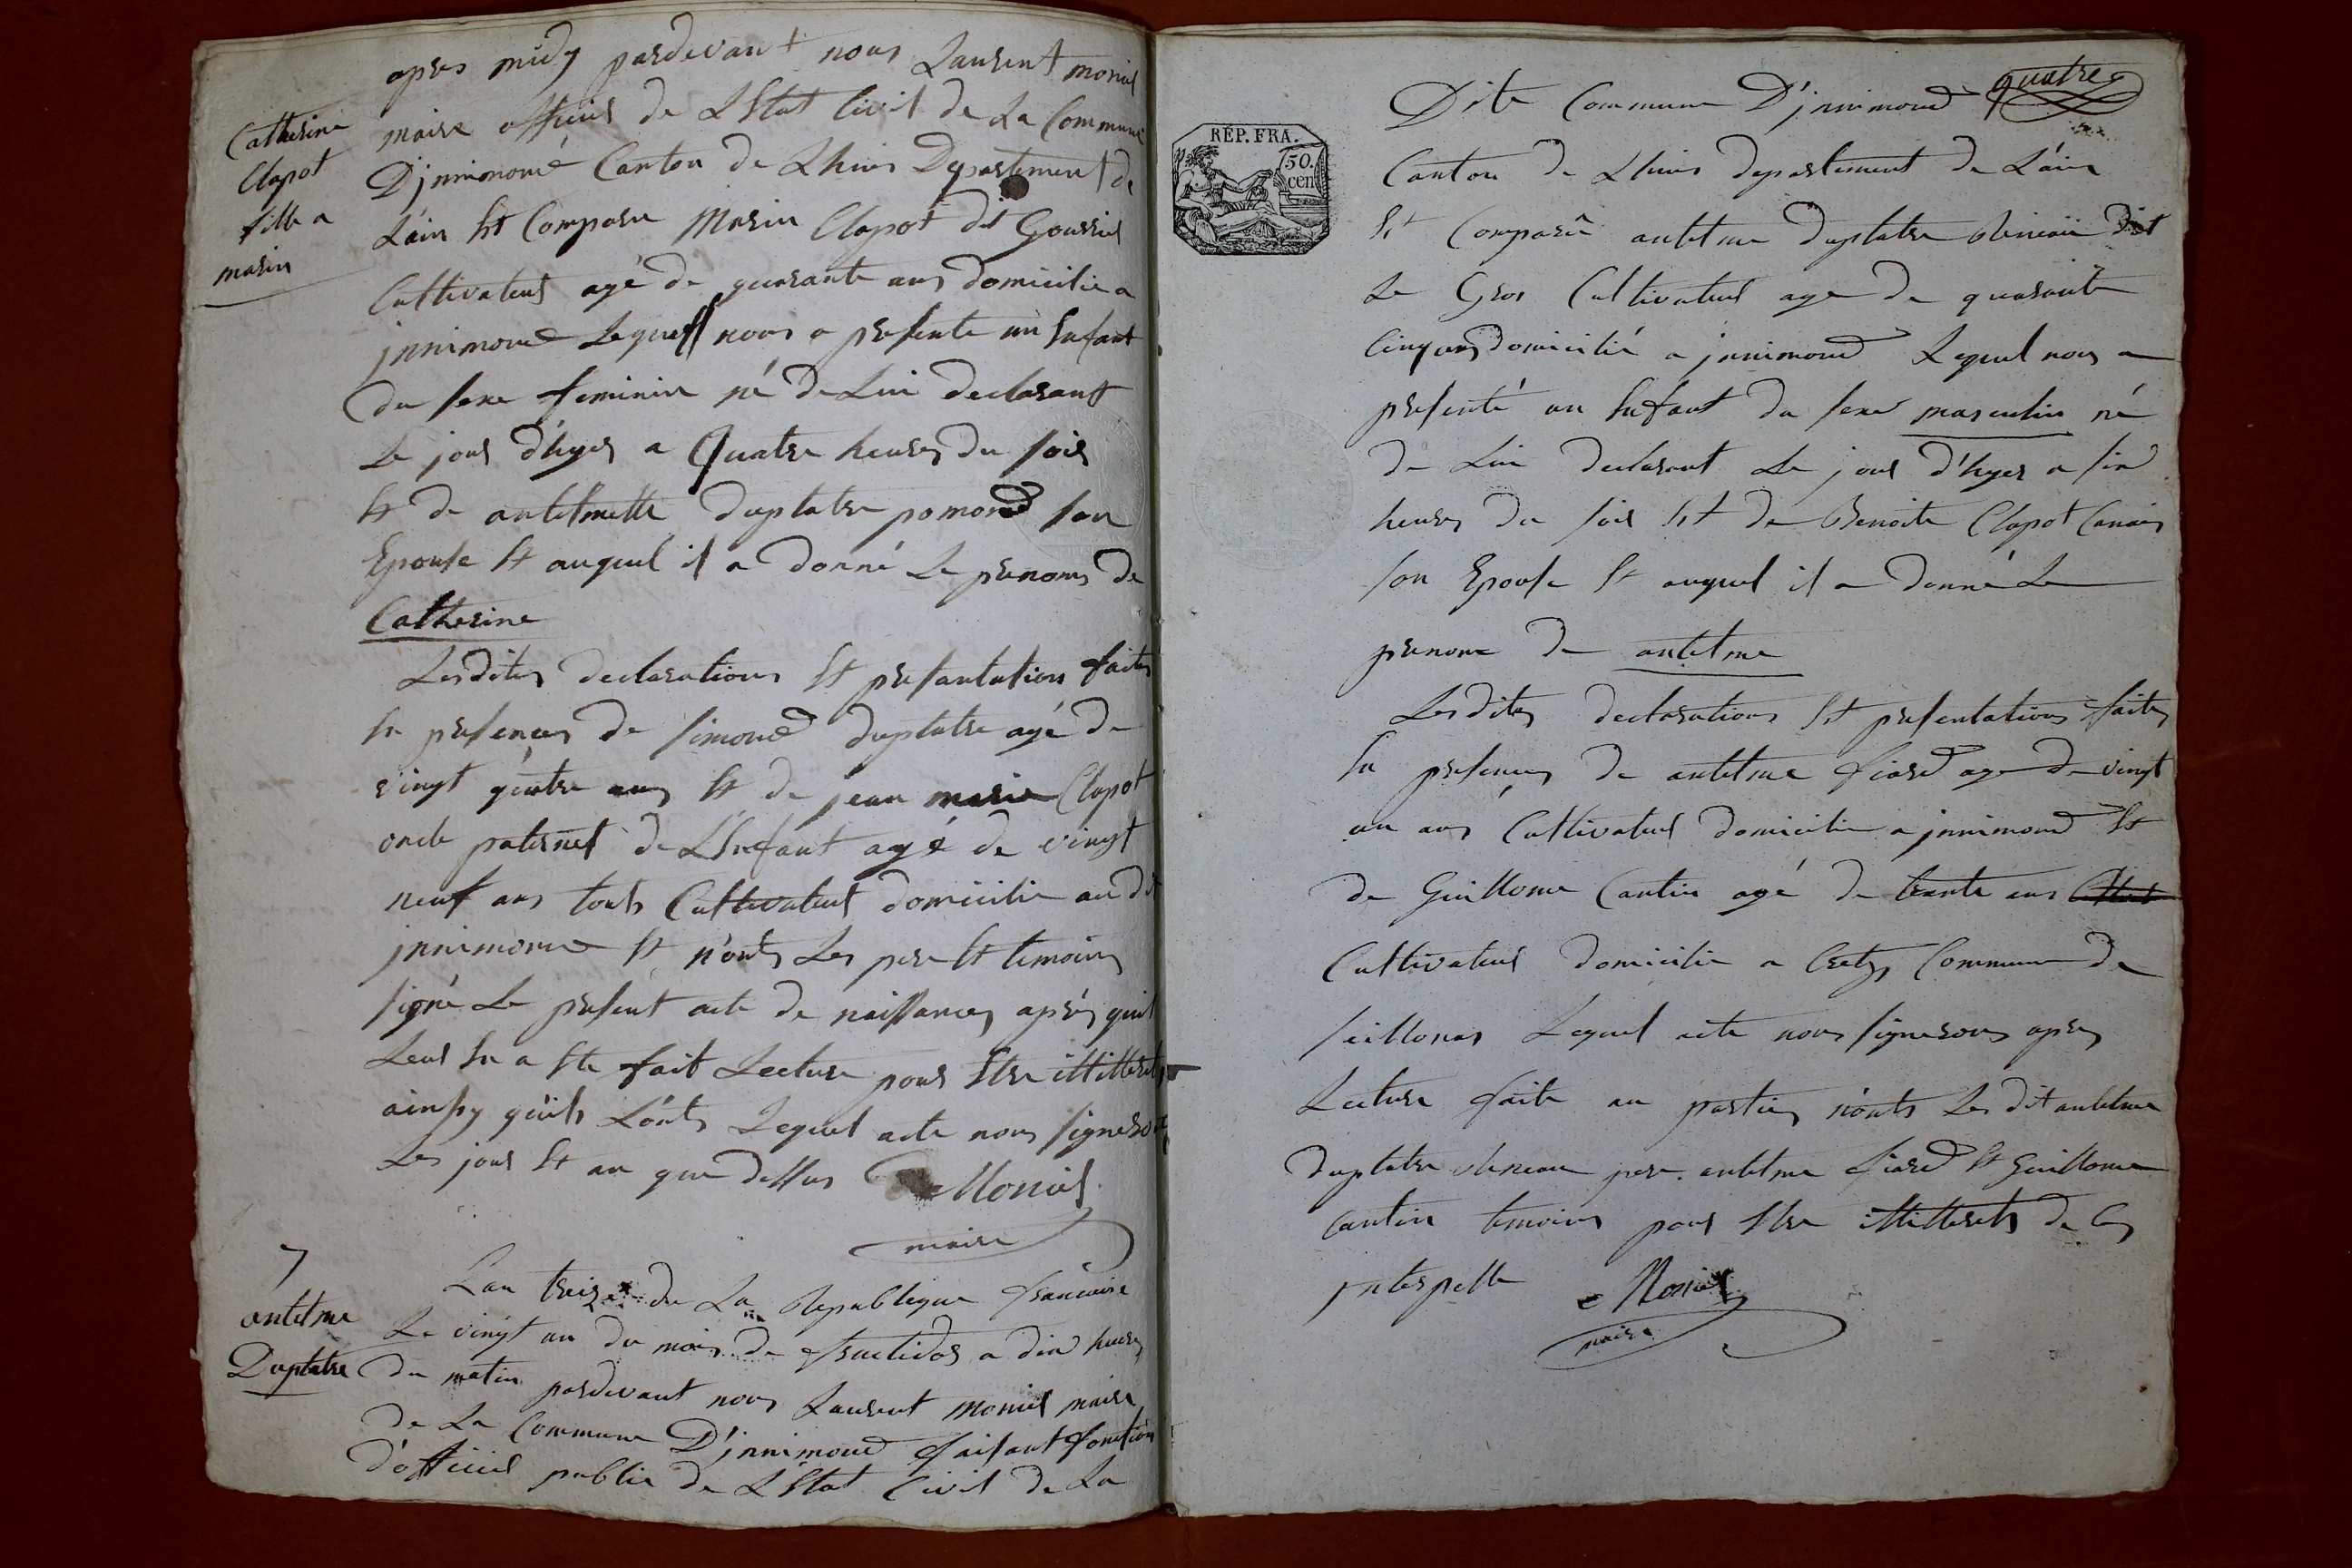 apres midy pardevant nous Laurent monier
maire officier de L Etat Civil de La Commune
D'jnnimond Canton de Lhuis Departement de
L'ain Et Comparu Marin Clapot dit Goursies
Cultivateur agé de quarante ans domicilie a
jnnimond Lequel nous a presente un Enfant
du sexe feminin né de Lui declarant
Le jour d'hyer a Quatre heures du soir
Et de antelmette duplatre pomond son
Epouse Et auquel il a donné Le prenoms de
Catherine
Les dites declarations Et presantation faites
En presences de simond duplatre agé de
vingt quatre ans Et de jean marie Clapot
oncle paternel de L'Enfant agé de vingt
neuf ans touts Cultivateur domicilie au dit
jnnimond Et n'onts Les pere Et temoins
signé Le present acte de naissances après quil
Leur En a Ete fait Lecture pour Etre illitterets
ainsy quils L'onts Lequel acte nous signerons
Les jour Et an que dessus Monier
maire
Catherine
Clapot
fille a
marin
7
antelme
Duplatre
L'an treize de La Republique francaise
Le vingt un du mois de fructidor a dix heures
du matin pardevant nous Laurent monier maire
de La Commune D'jnnimond faisant fonction
d'officier public de L Etat Civil de La
quatre
RÉP. FRA.
50.
cen
Dite Commune D'jnnimond
Canton de Lhuis departement de L'ain
Et Comparu antelme duplatre dit
Le Gros Cultivateur age de quarante
Cinq ans domicilié a jnnimond Lequel nous a
presenté un Enfant du sexe masculin né
de Lui declarant Le jour d'hyer a six
heures du soir Et de Benoite Clapot
son Epouse Et auquel il a donné Le
prenom de antelme
Les dites declarations Et presentations faites
En presences de antelme fiard age de vingt
un ans Cultivateur domicilie a jnnimond Et
de Guillome Cantin agé de trente ans
Cultivateur domicilie a Cretz Commune de
seillonas Lequel acte nous signerons apres
Lecture faite au parties n'onts Les dit antelme
duplatre pere antelme fiard Et Guillome
Cantin temoins pour Etre illitterets de Ces
jnterpelle Monier
maire